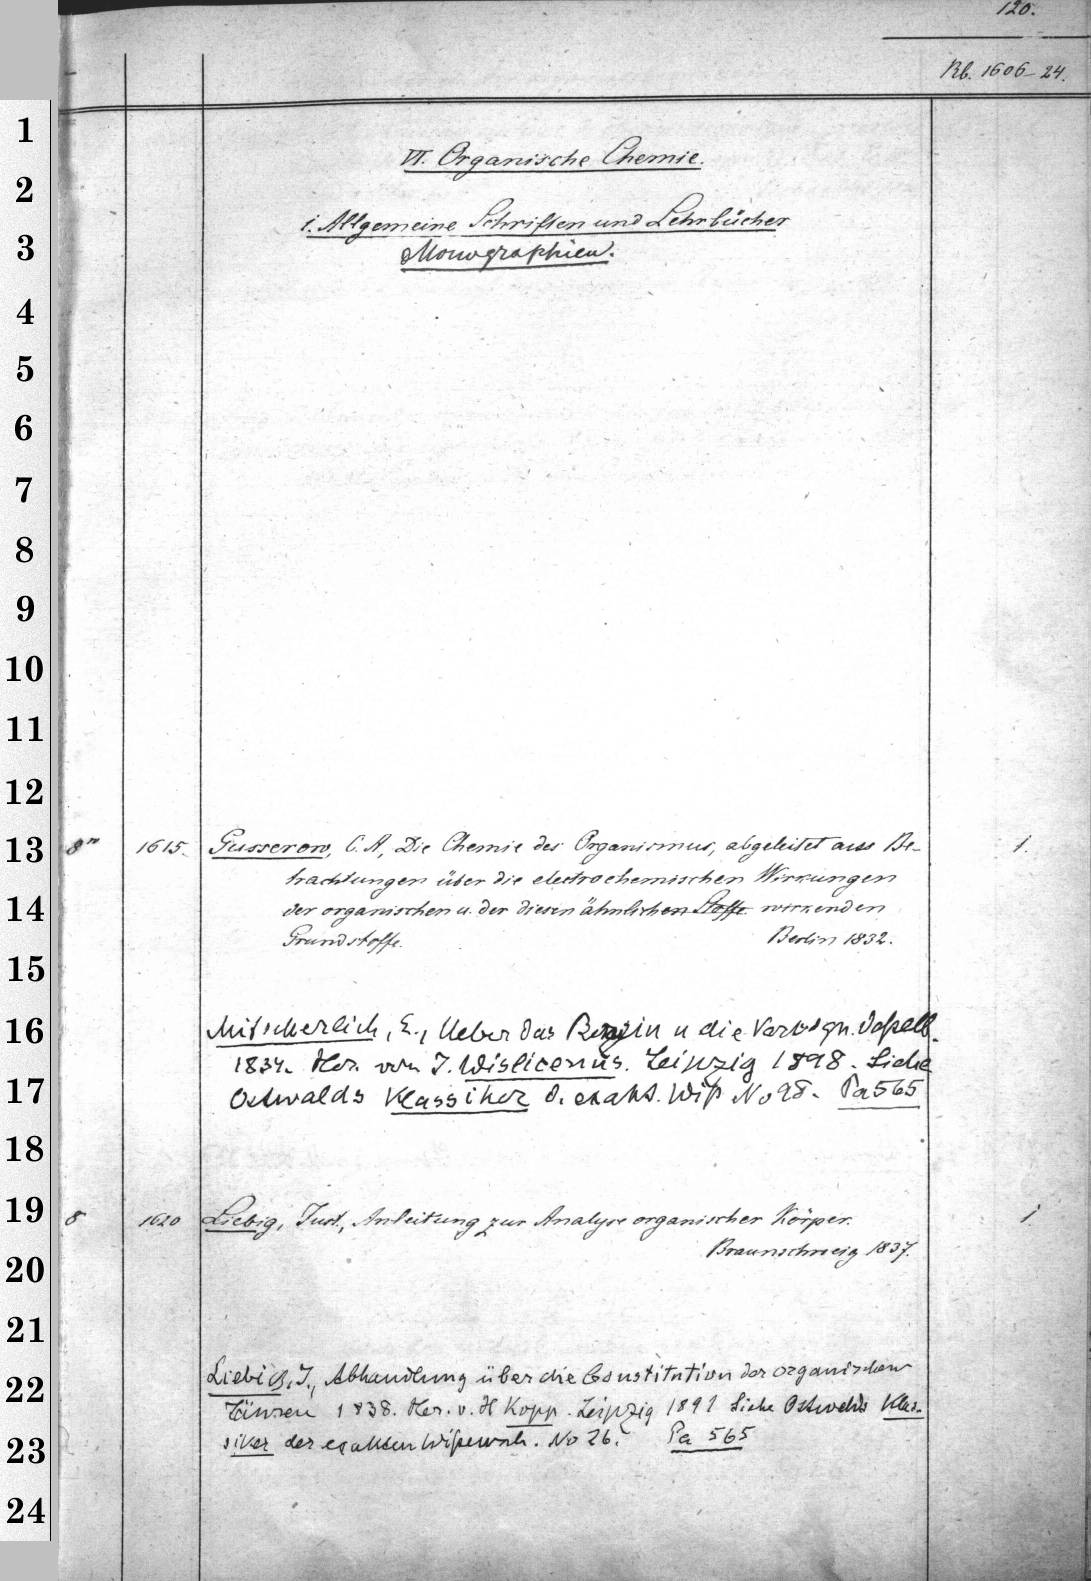 120.
Rb. 1606-24.
1
VI. Organische Chemie.
2
i. Allgemeine Schriften und Lehrbücher
3
Monographien.
4
5
6
7
8
9
10
11
12
13 8° 1615. Gusserow, C. A, Die Chemie des Organismus, abgeleitet aus Be- 1.
trachtungen über die electrochemischen Wirkungen
14 der organischen u. der diesen ähnlichen Stoffe wirkenden
Grundstoffe. Berlin 1832.
15
16 Mitscherlich, E., Ueber das Benzin u die Verbdgn. daßelb.
1834. Her. von J. Wislicenus. Leipzig 1898. Siehe
17 Ostwalds Klassiker d. exakt. Wiß No 98. Pa 565
18
19 8 1620 Liebig, Just., Anleitung zur Analyse organischer Körper. 1
Braunschweig 1837.
20
21
22 Liebig, J., Abhandlung über die Constitution der organischen
Säuren 1838. Her. v. H Kopp. Leipzig 1891 Siehe Ostwalds Klas-
23 siker der exakten Wißensch. No 26. Pa 565
24